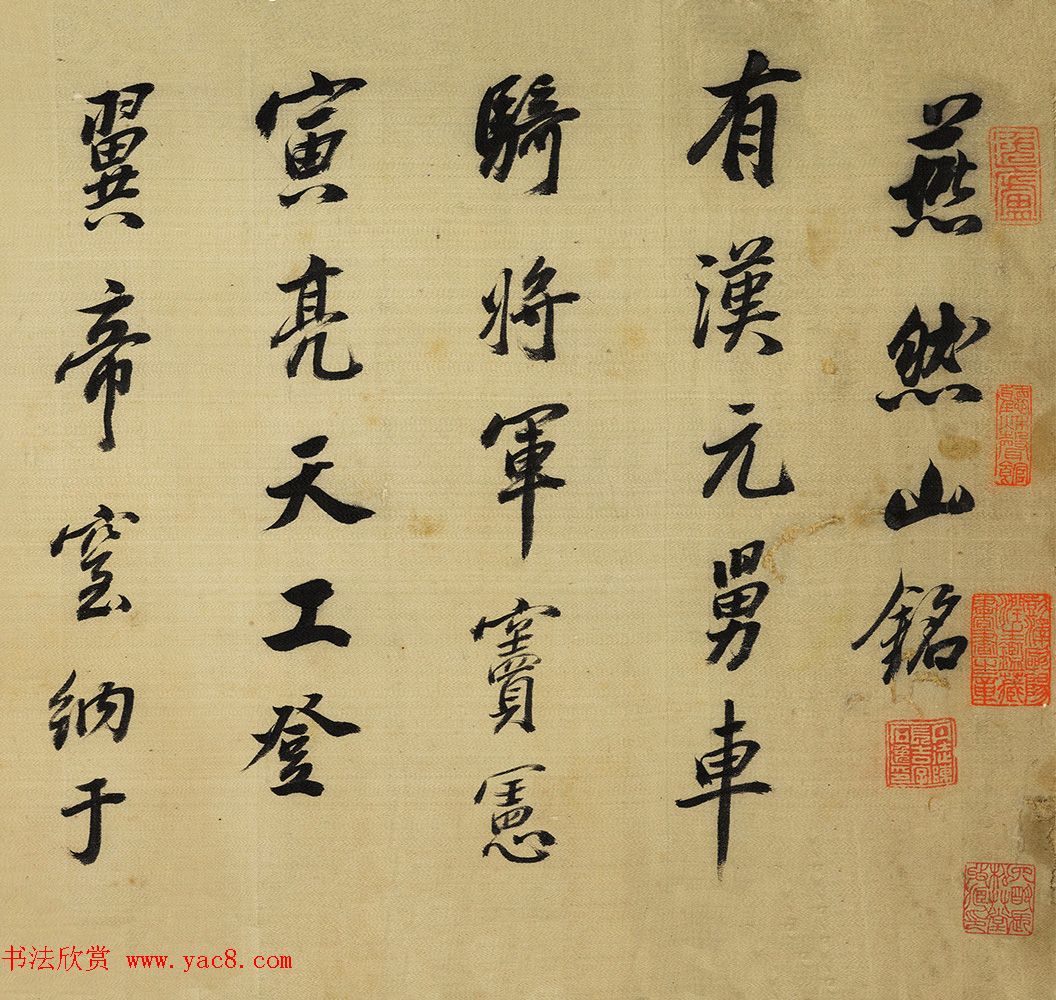 燕然山銘
有漢元舅車
騎將軍竇憲
寅亮天工登
翼帝室納于
书法欣赏 www.yac8.com